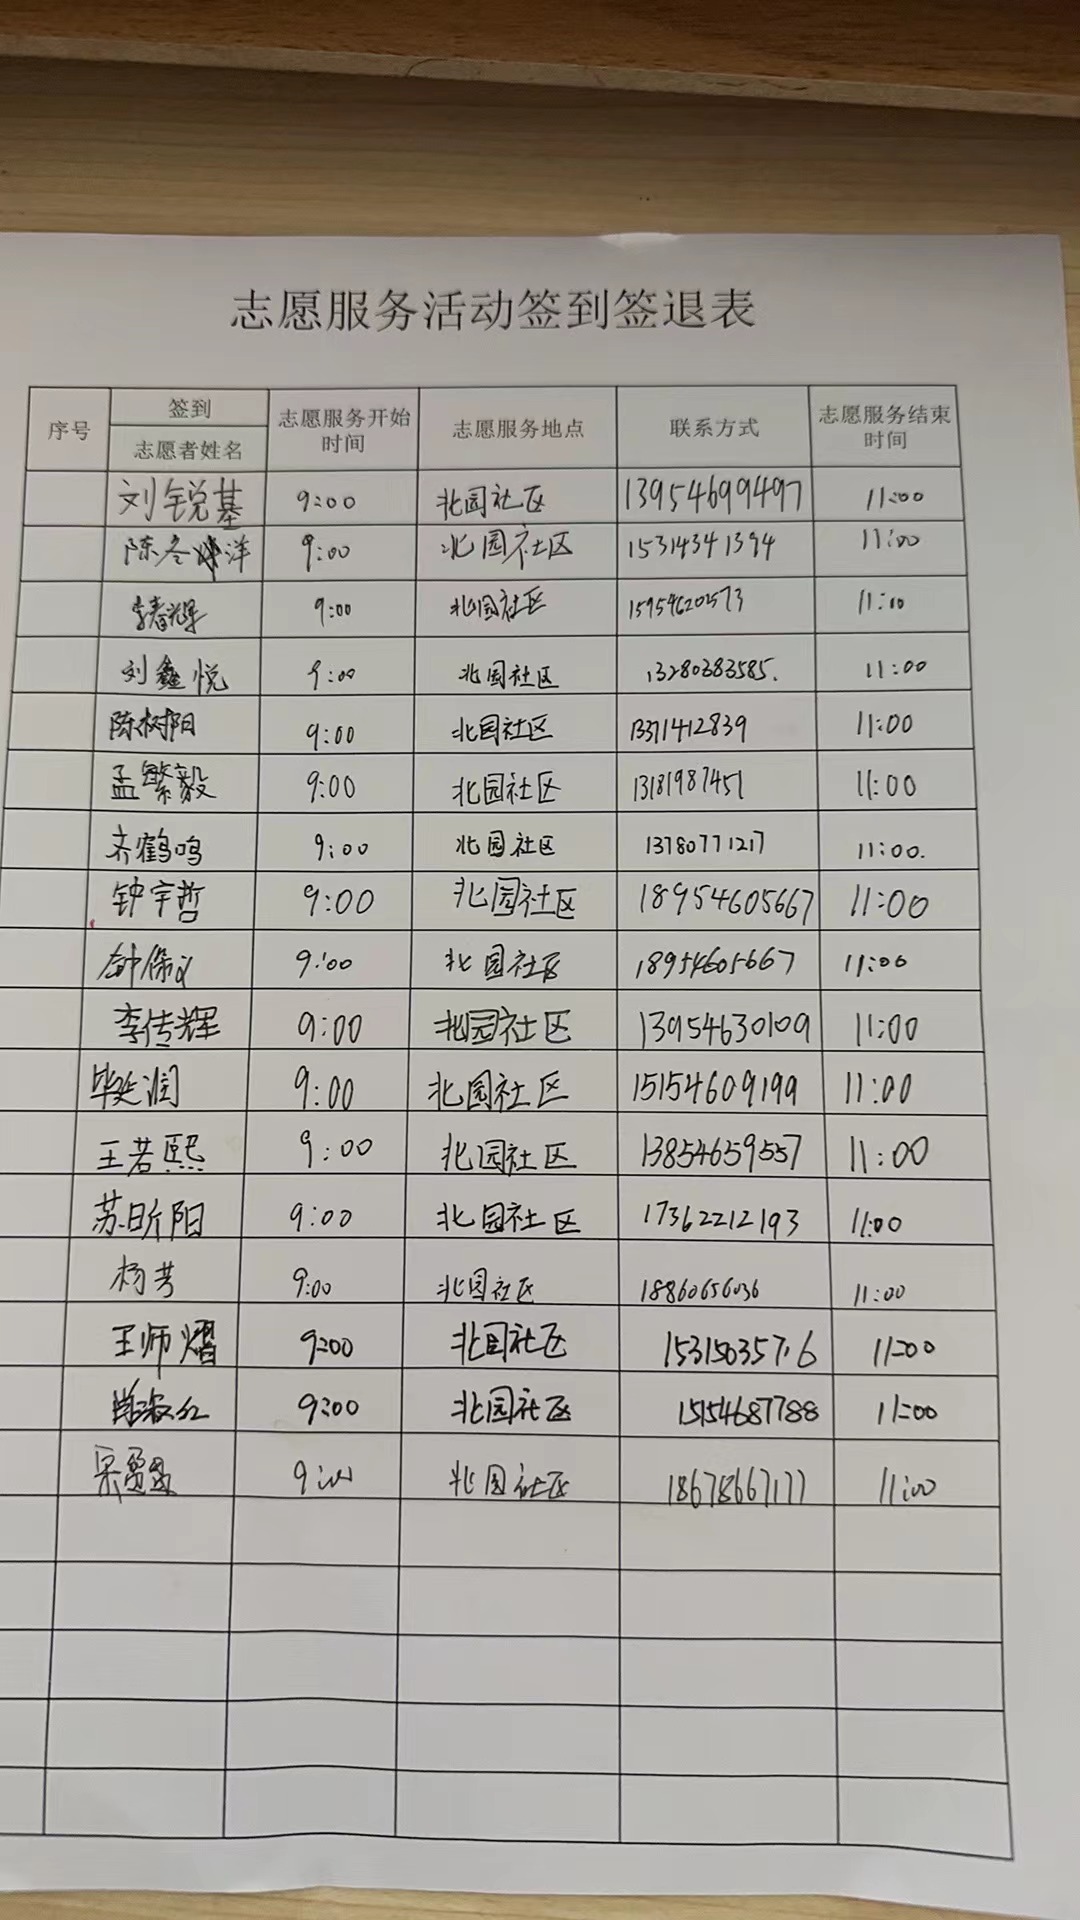 志愿服务活动签到签退表
序号 签到 志愿者姓名 志愿服务开始时间 志愿服务地点 联系方式 志愿服务结束时间
刘锐基 9:00 北园社区 13954699497 11:00
陈冬洋 9:00 北园社区 15314341394 11:00
李春辉 9:00 北园社区 15954620573 11:00
刘鑫悦 9:00 北园社区 13280383585. 11:00
陈树阳 9:00 北园社区 13371412839 11:00
孟繁毅 9:00 北园社区 13181987451 11:00
齐鹤鸣 9:00 北园社区 13780771217 11:00.
钟宇哲 9:00 北园社区 18954605667 11:00
9:00 北园社区 18954605667 11:00
李传辉 9:00 北园社区 13954630109 11:00
毕延润 9:00 北园社区 15154609199 11:00
王若熙 9:00 北园社区 13854659557 11:00
苏昕阳 9:00 北园社区 17362212193 11:00
杨芳 9:00 北园社区 18860656036 11:00
王师熠 9:00 北园社区 11:00
9:00 北园社区 15154687788 11:00
9:00 北园社区 18678667177 11:00